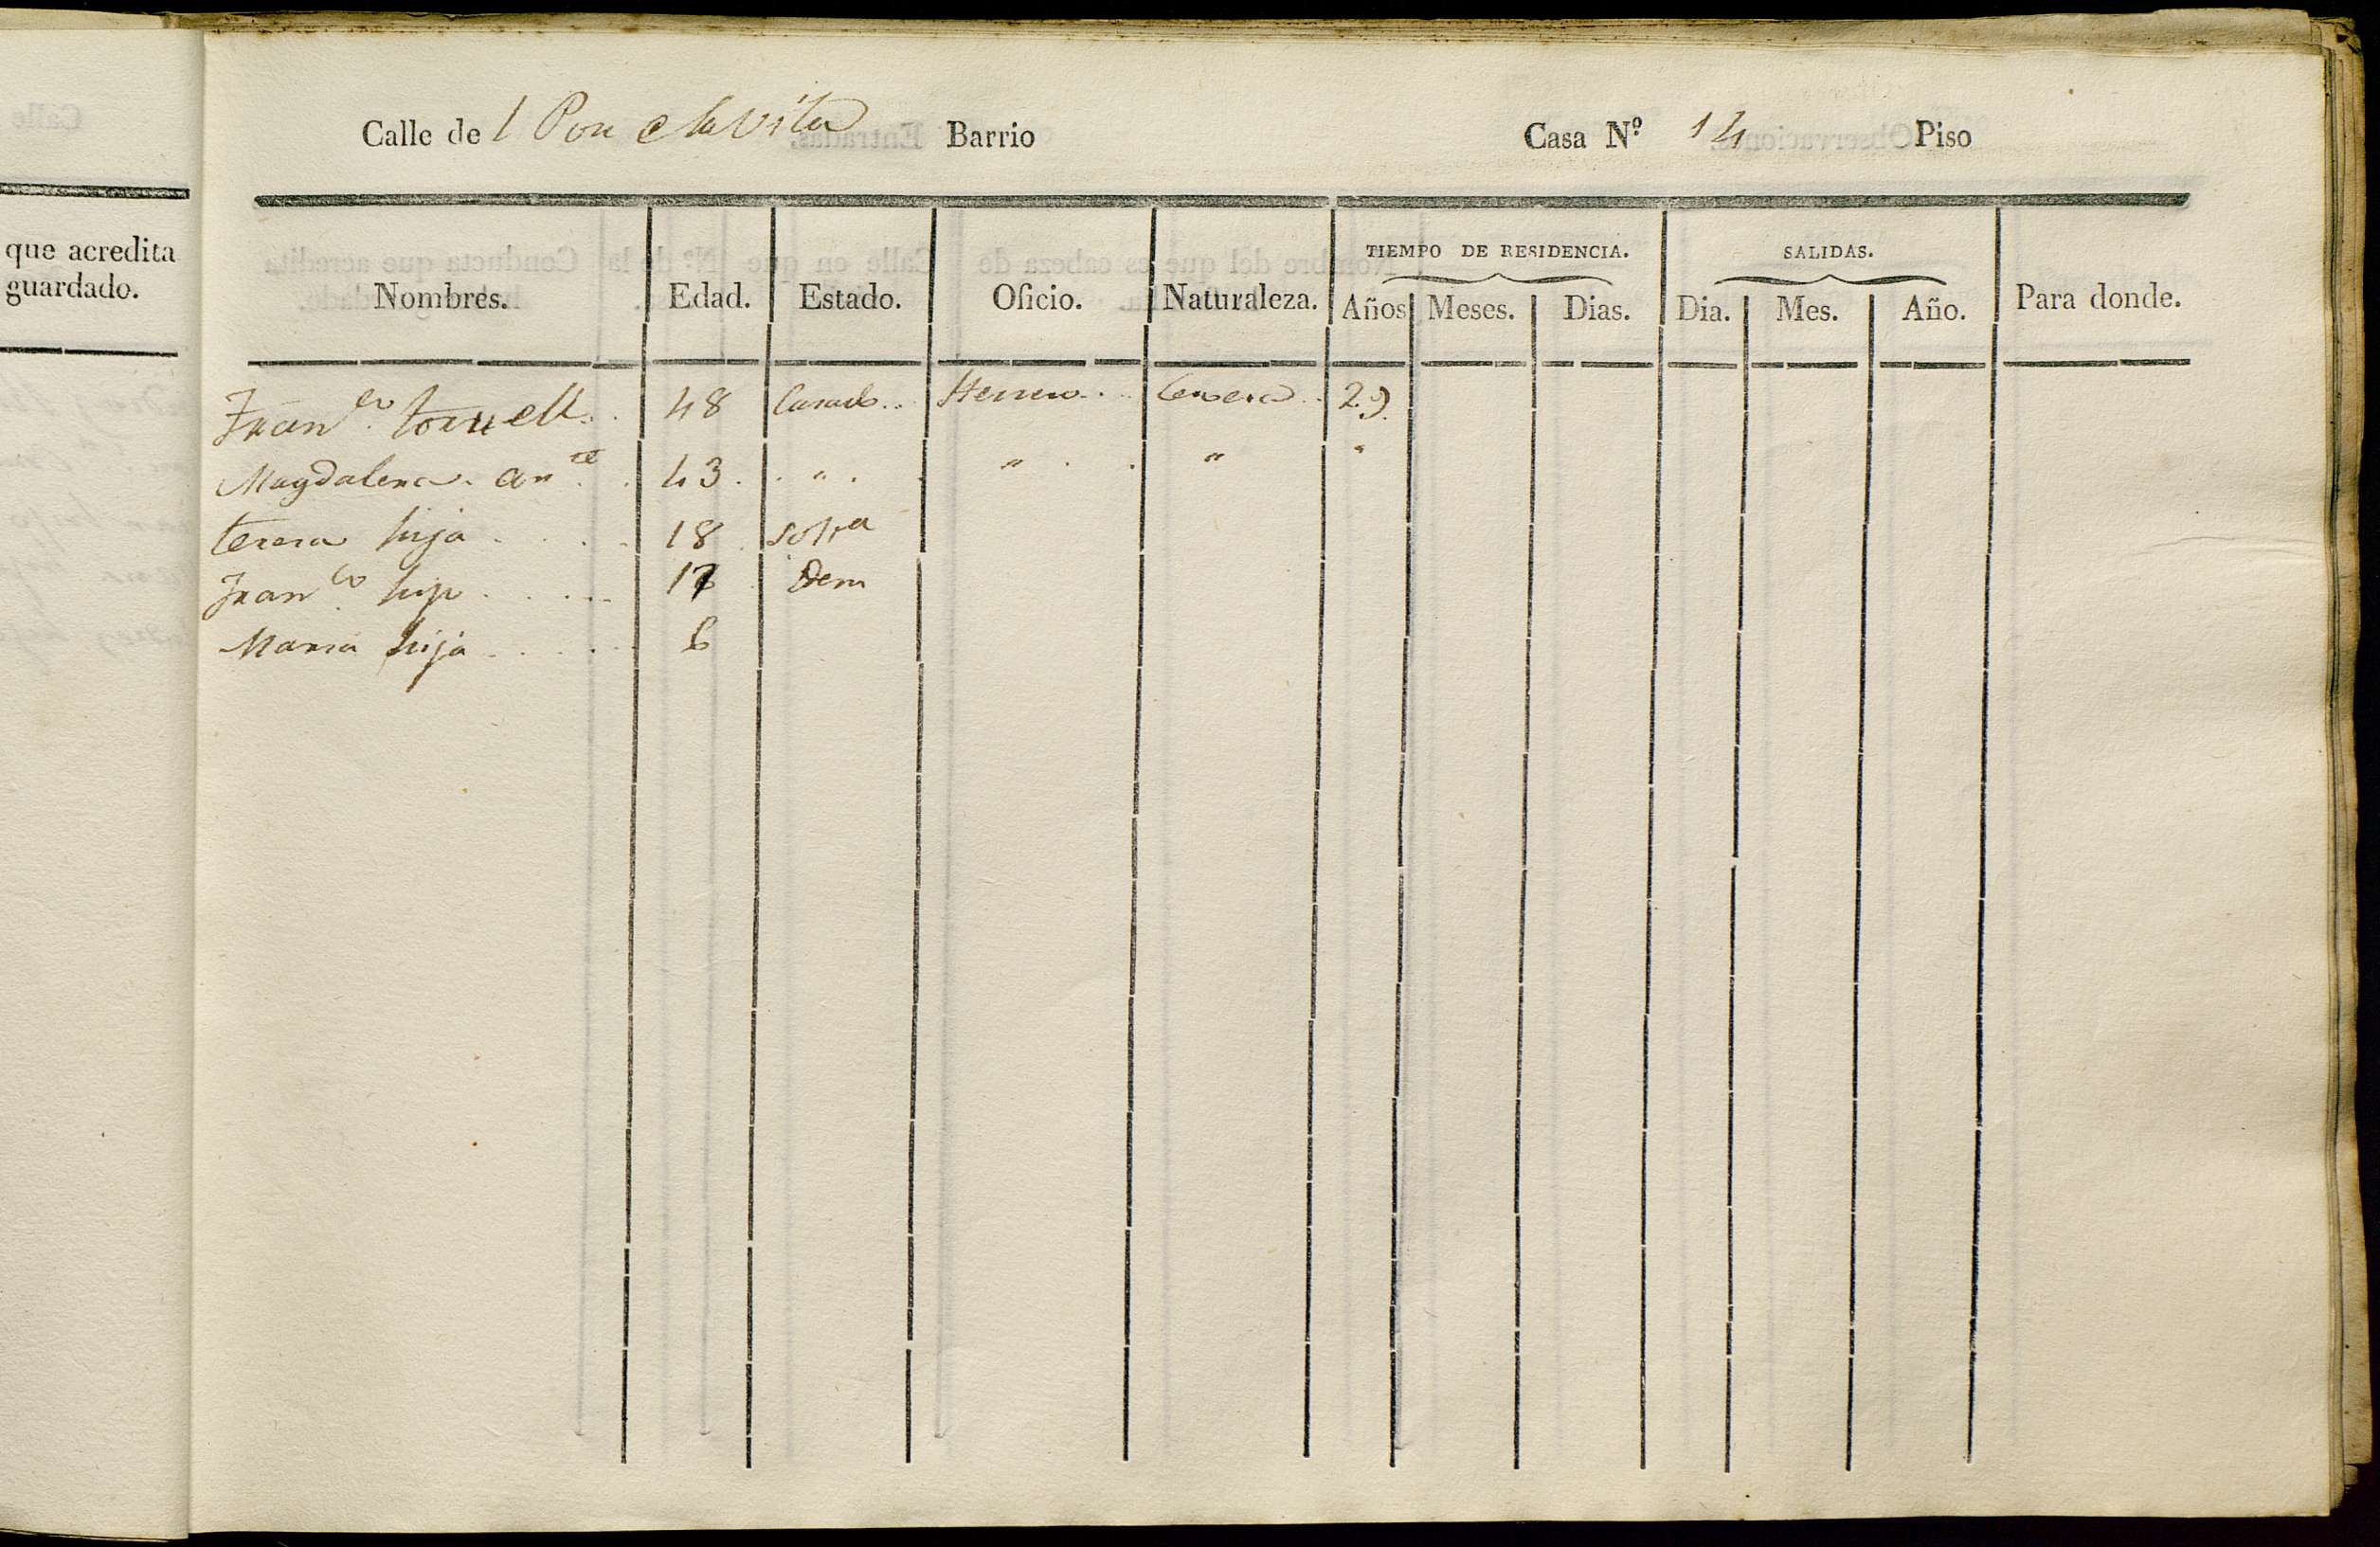 Calle de l Pou de la Vila Barrio Casa Nº 14 Piso
que acredita
guardado.
TIEMPO DE RESIDENCIA. SALIDAS.
Nombres. Edad. Estado. Oficio. Naturaleza. Años Meses. Dias. Dia. Mes. Año. Para donde.
Franco. torrell. . 48 Casado .. Herrero . . Cervera . . 29.
Magdalena. . 43 . . " . " . . " "
teresa hija . . . . 18 Solta
Franco. hijo . . . . . 17 Idem
Maria hija . . . . . 6